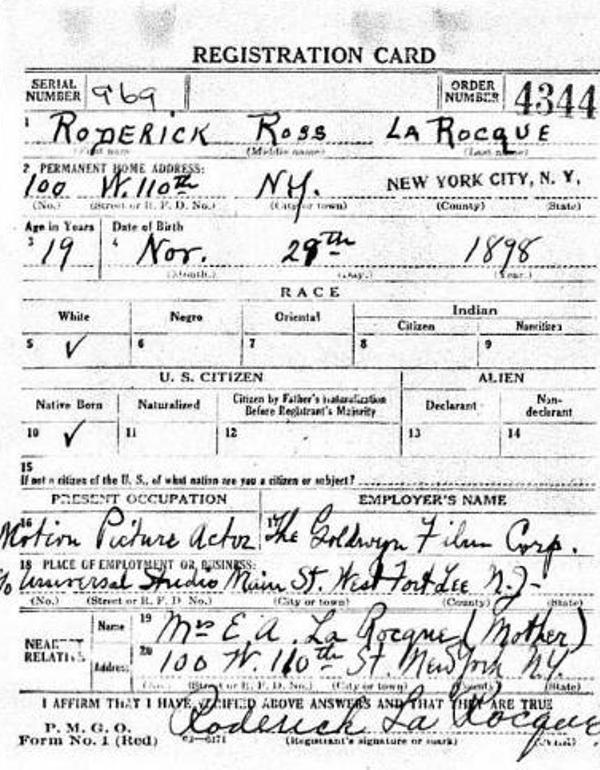 REGISTRATION CARD
SERIAL NUMBER 969 ORDER NUMBER 4344
1 RODERICK ROSS LA ROCQUE
(First name) (Middle name) (Last name)
2 PERMANENT HOME ADDRESS:
100 W. 110th N.Y. NEW YORK CITY, N. Y,
(No.) (Street or R. F. D. No.) (City or town) (County) (State)
Age in Years Date of Birth
3 19 4 Nov. 29th 1898
(Month.) (Day.) (Year.)
RACE
White Negro Oriental Indian
Citizen Noncitizen
5 ✓ 6 7 8 9
U. S. CITIZEN ALIEN
Native Born Naturalized Citizen by Father's Naturalization Before Registrant's Majority Declarant Non-declarant
10 ✓ 11 12 13 14
15
If not a citizen of the U. S., of what nation are you a citizen or subject?
PRESENT OCCUPATION EMPLOYER'S NAME
16 Motion Picture Actor 17 The Goldwyn Film Corp.
18 PLACE OF EMPLOYMENT OR BUSINESS:
c/o Universal Studio Main St. West Fort Lee N.J.
(No.) (Street or R. F. D. No.) (City or town) (County) (State)
NEAREST RELATIVE Name 19 Mrs E. A. La Rocque (Mother)
Address 20 100 W. 110th St. New York N.Y.
(No.) (Street or R. F. D. No.) (City or town) (County) (State)
I AFFIRM THAT I HAVE VERIFIED ABOVE ANSWERS AND THAT THEY ARE TRUE
P. M. G. O.
Form No. 1 (Red) Roderick La Rocque
(Registrant's signature or mark)